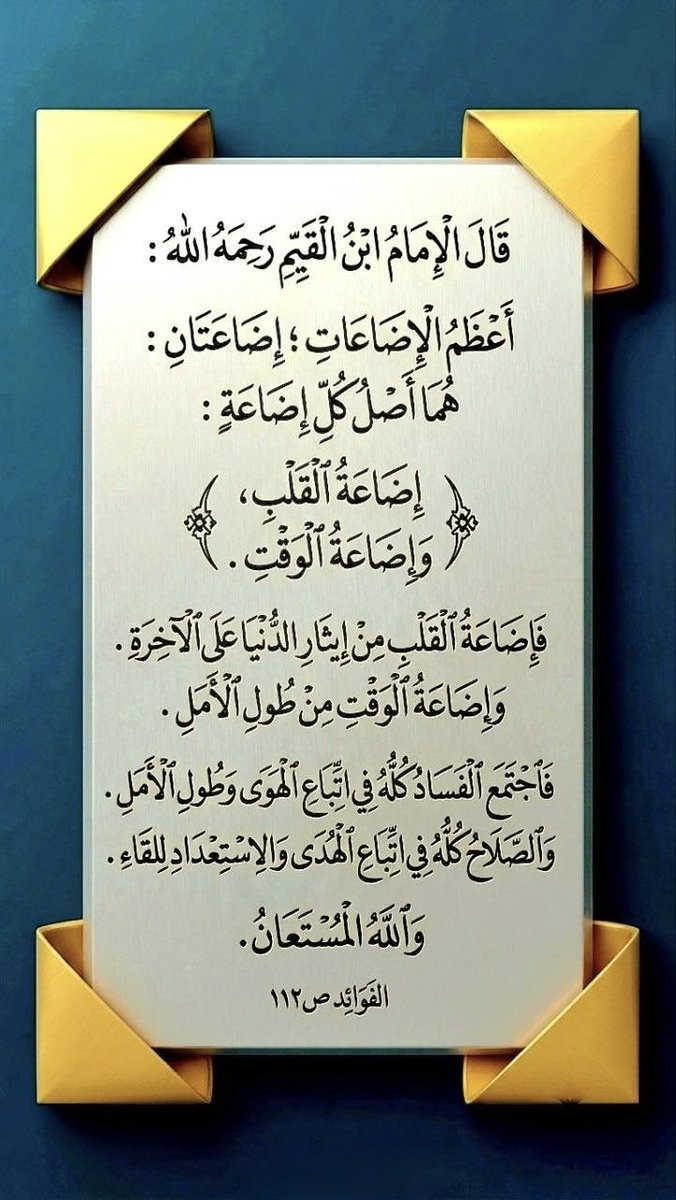 قَالَ الْإِمَامُ ابْنُ الْقَيِّمِ رَحِمَهُ اللهُ :
أَعْظَمُ الْإِضَاعَاتِ ؛ إِضَاعَتَانِ :
هُمَا أَصْلُ كُلِّ إِضَاعَةٍ :
إِضَاعَةُ ٱلْقَلْبِ،
وَإِضَاعَةُ ٱلْوَقْتِ .
فَإِضَاعَةُ ٱلْقَلْبِ مِنْ إِيثَارِ الدُّنْيَا عَلَى ٱلْآخِرَةِ .
وَإِضَاعَةُ ٱلْوَقْتِ مِنْ طُولِ ٱلْأَمَلِ .
فَٱجْتَمَعَ ٱلْفَسَادُ كُلُّهُ فِي اتِّبَاعِ ٱلْهَوَى وَطُولِ ٱلْأَمَلِ .
وَٱلصَّلَاحُ كُلُّهُ فِي اتِّبَاعِ ٱلْهُدَى وَالِاسْتِعْدَادِ لِلِقَاءِ .
وَٱللَّهُ الْمُسْتَعَانُ.
الفَوَائِد ص١١٢